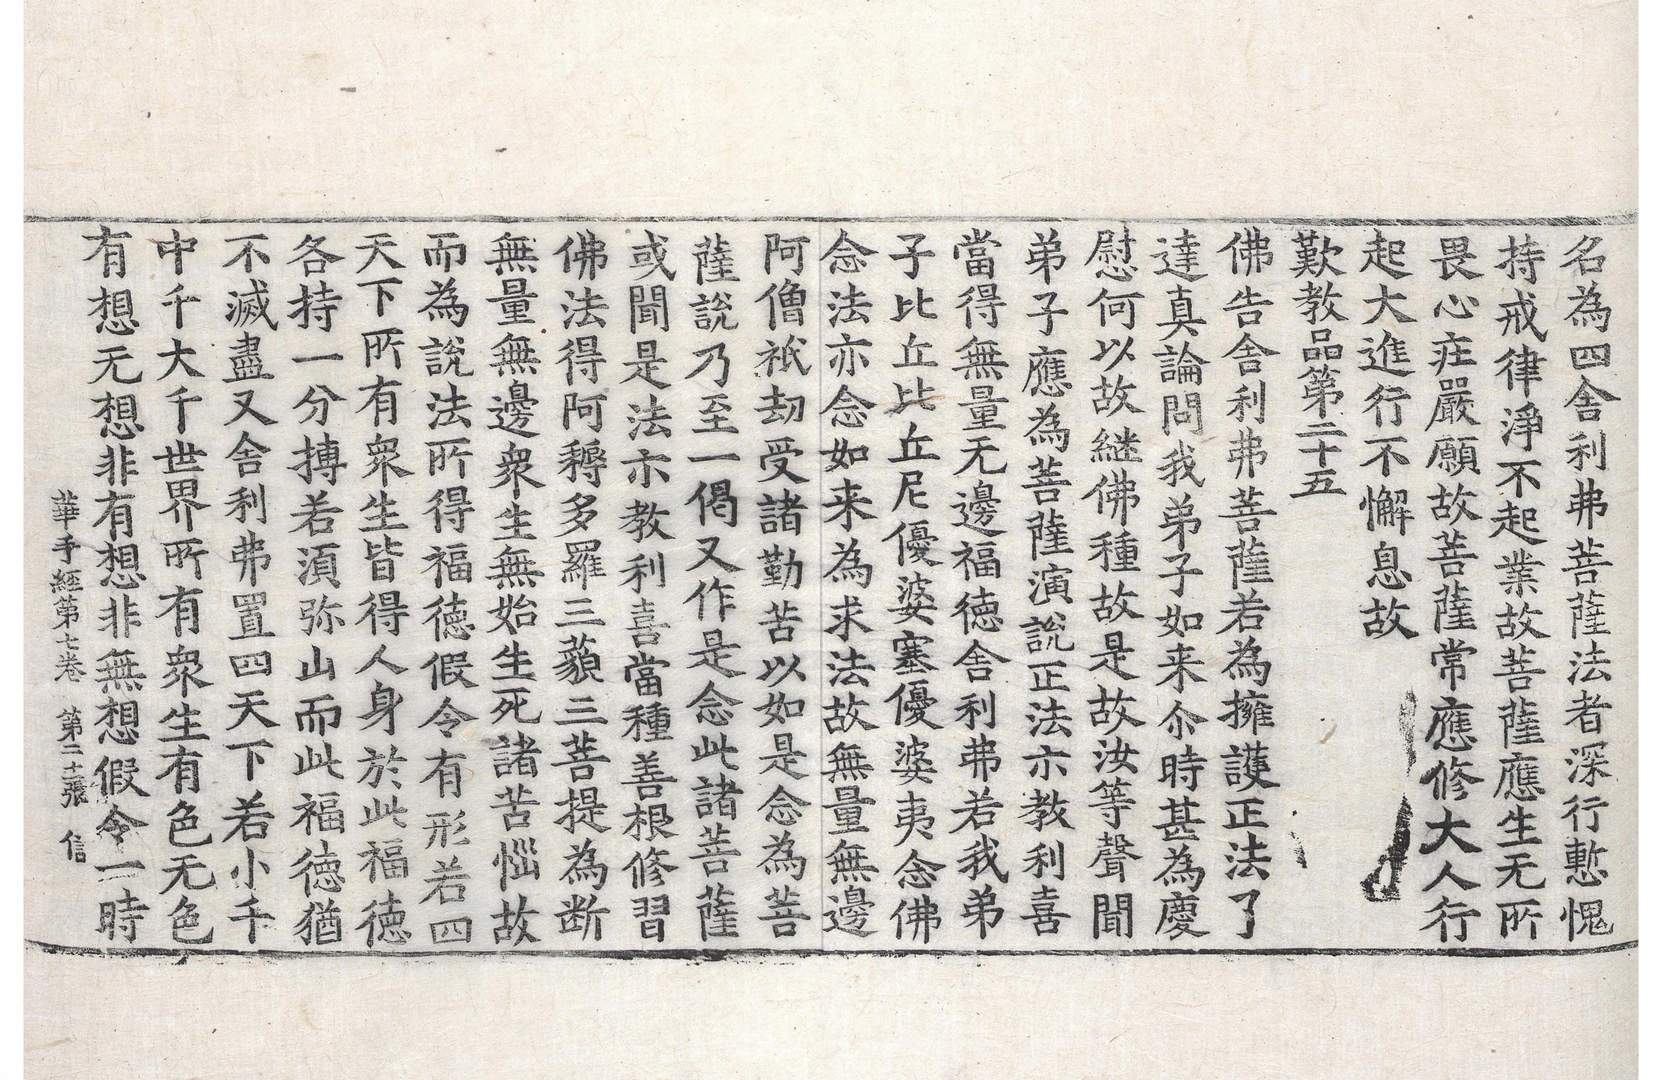 名為四舍利弗菩薩法者深行慙愧
持戒律淨不起業故菩薩應生无所
畏心莊嚴願故菩薩常應修大人行
起大進行不懈息故
歎教品第二十五
佛告舍利弗菩薩若為擁護正法了
達真論問我弟子如来尒時甚為慶
慰何以故継佛種故是故汝等聲聞
弟子應為菩薩演說正法亦教利喜
當得無量无邊福德舍利弗若我弟
子比丘比丘尼優婆塞優婆夷念佛
念法亦念如来為求法故無量無邊
阿僧祇劫受諸勤苦以如是念為菩
薩說乃至一偈又作是念此諸菩薩
或聞是法亦教利喜當種善根修習
佛法得阿耨多羅三藐三菩提為断
無量無邊衆生無始生死諸苦惱故
而為說法所得福德假令有形若四
天下所有衆生皆得人身於此福德
各持一分摶若須弥山而此福德猶
不滅盡又舍利弗置四天下若小千
中千大千世界所有衆生有色无色
有想无想非有想非無想假令一時
華手經第七卷 第二十張 信